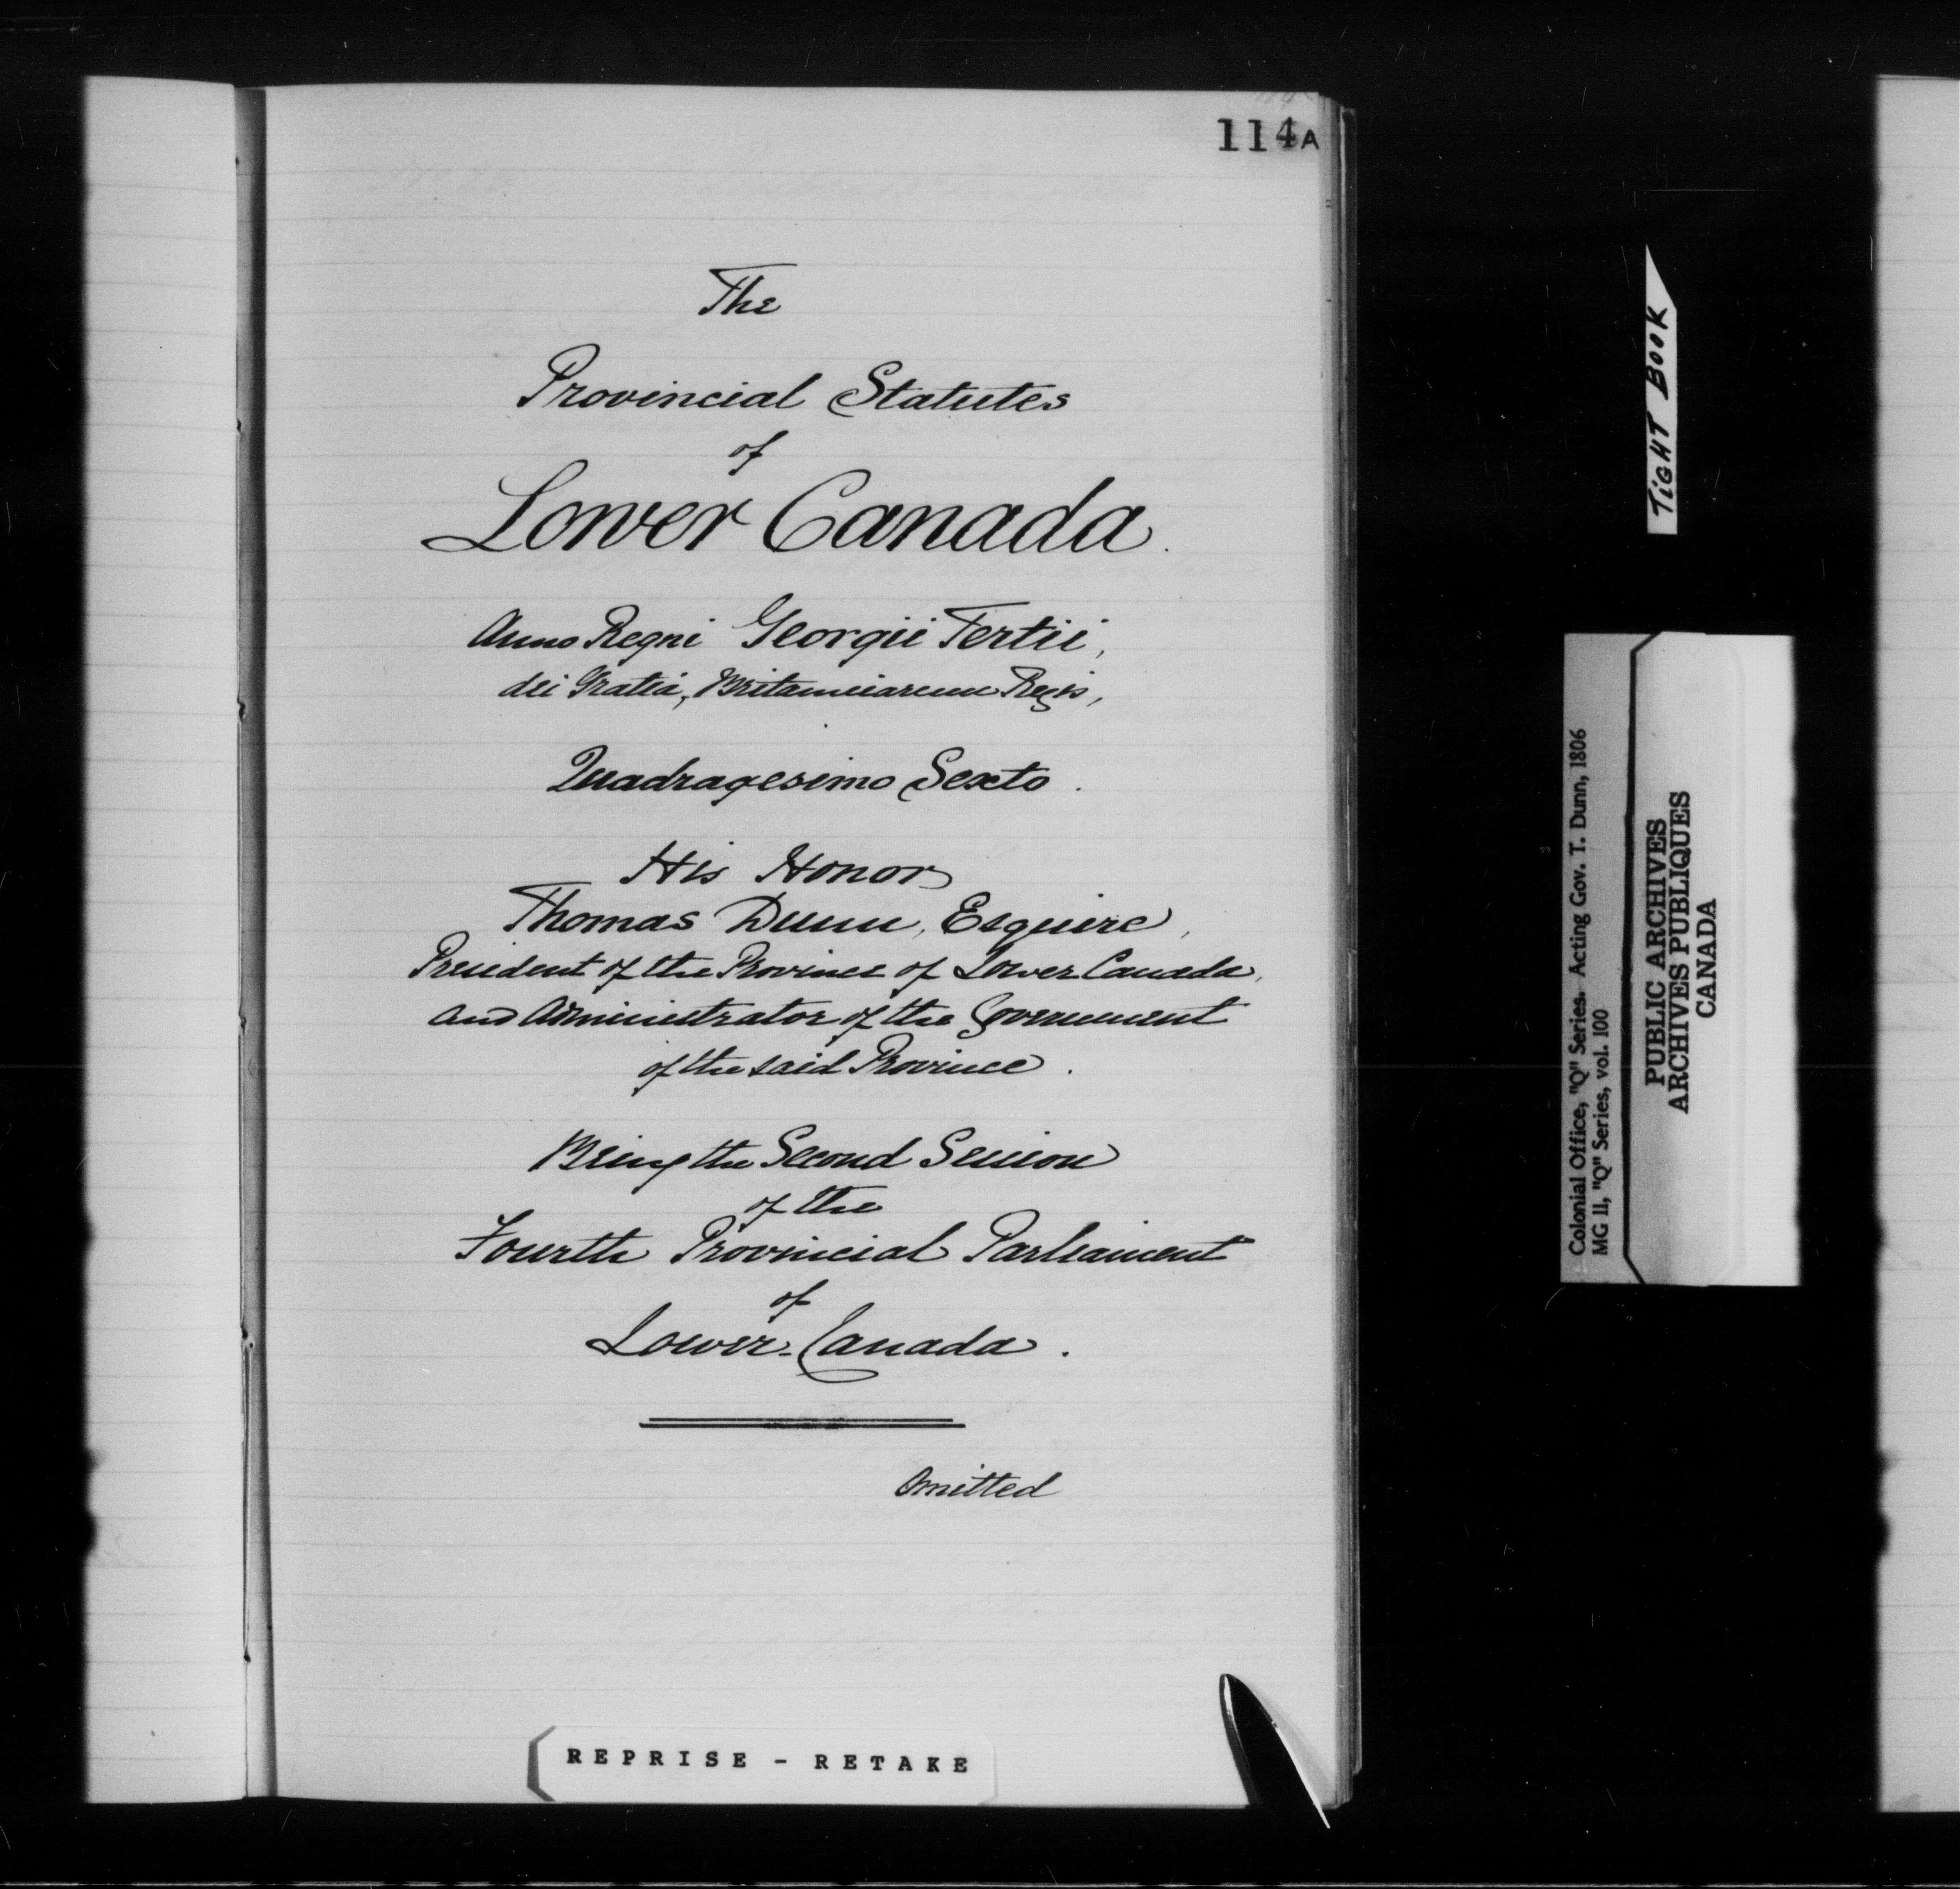 114A
The
Provincial Statutes
of
Lower Canada.
Anno Regni Georgii Tertii,
dei Gratia, Britanniarum Regis,
Quadragesimo Sexto.
His Honor
Thomas Dunn, Esquire,
President of the Province of Lower Canada,
and Administrator of the Government
of the said Province.
Being the Second Session
of the
Fourth Provincial Parliament
of
Lower-Canada.
Omitted
REPRISE - RETAKE
TIGHT BOOK
Colonial Office, "Q" Series. Acting Gov. T. Dunn, 1806
MG 11, "Q" Series, vol. 100
PUBLIC ARCHIVES
ARCHIVES PUBLIQUES
CANADA